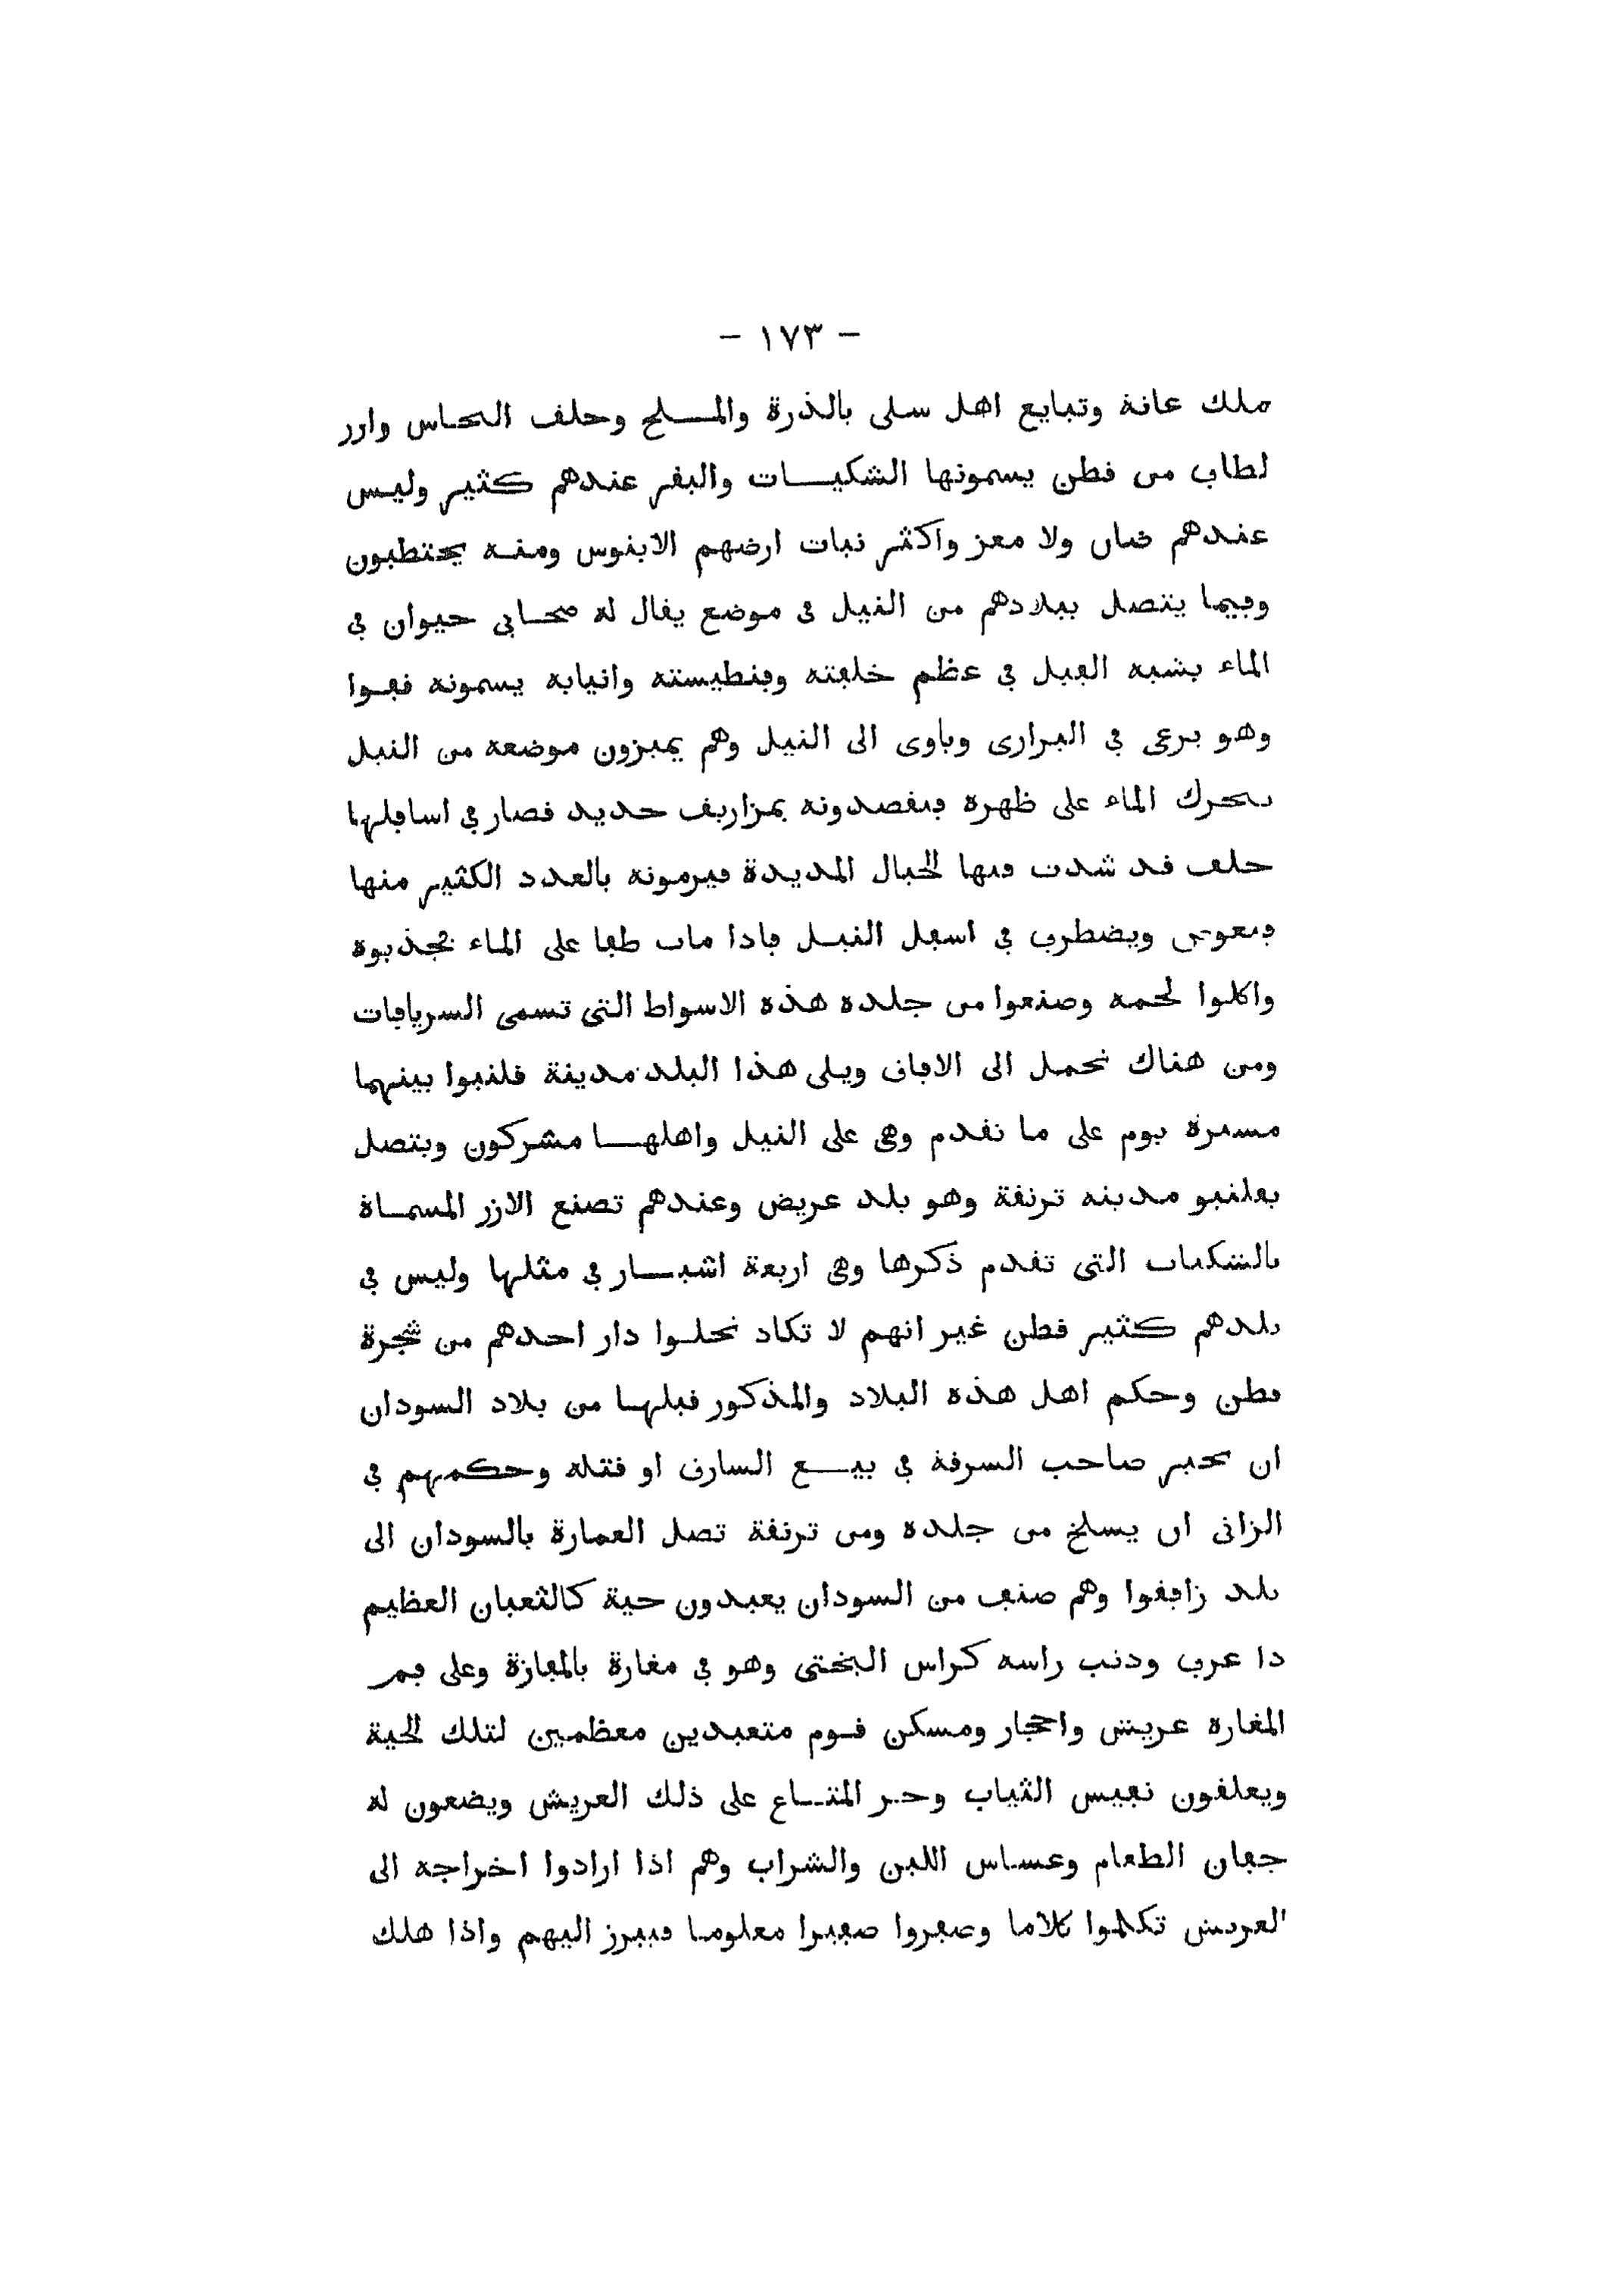 - ١٧٣ -
ملك غانة وتبايع اهل سلى بالذرة والملح وحلق النحاس وازر
لطاف من قطن يسمونها الشكيات والبقر عندهم كثير وليس
عندهم ضان ولا معز واكثر نبات ارضهم الابنوس ومنه يحتطبون
وفيما يتصل ببلادهم من النيل فى موضع يقال له صحابى حيوان فى
الماء يشبه الفيل فى عظم خلقته وفنطيسته وانيابه يسمونه قفوا
وهو يرعى فى البرارى وياوى الى النيل وهم يميزون موضعه من النيل
بتحرك الماء على ظهره فيقصدونه بمزاريق حديد قصار فى اسافلها
حلق قد شدت فيها الحبال المديدة فيرمونه بالعدد الكثير منها
فيغوص ويضطرب فى اسفل النيل فاذا مات طفا على الماء فجذبوه
واكلوا لحمه وصنعوا من جلده هذه الاسواط التى تسمى السريافات
ومن هناك تحمل الى الافاق ويلى هذا البلد مدينة قلنبوا بينهما
مسيرة يوم على ما تقدم وهى على النيل واهلها مشركون ويتصل
بقلنبو مدينه ترنقة وهو بلد عريض وعندهم تصنع الازر المسماة
بالشكيات التى تقدم ذكرها وهى اربعة اشبار فى مثلها وليس فى
بلدهم كثير قطن غير انهم لا تكاد تخلوا دار احدهم من شجرة
قطن وحكم اهل هذه البلاد والمذكور قبلها من بلاد السودان
ان يخير صاحب السرقة فى بيع السارق او قتله وحكمهم فى
الزانى ان يسلخ من جلده ومن ترنقة تصل العمارة بالسودان الى
بلد زافقوا وهم صنف من السودان يعبدون حية كالثعبان العظيم
ذا عرف وذنب راسه كراس البختى وهو فى مغارة بالمفازة وعلى فم
المغاره عريش واحجار ومسكن قوم متعبدين معظمين لتلك الحية
ويعلقون نفيس الثياب وحر المتاع على ذلك العريش ويضعون له
جفان الطعام وعساس اللبن والشراب وهم اذا ارادوا اخراجه الى
العريش تكلموا كلاما وصفروا صفيرا معلوما فيبرز اليهم واذا هلك